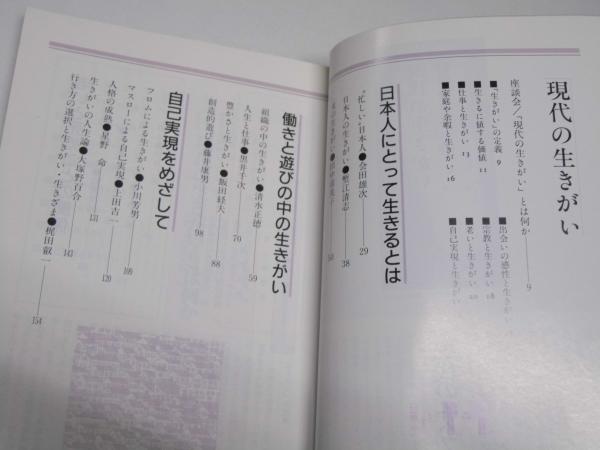 「現代の生きがい」
座談会／「現代の生きがい」とは何か 9
■「生きがい」の定義 9
■生きるに値する価値 11
■仕事と生きがい 13
■家庭や余暇と生きがい 16
■出会いの感性と生きがい
■宗教と生きがい 18
■老いと生きがい 20
■自己実現と生きがい
日本人にとって生きるとは
“忙しい”日本人●会田雄次 29
日本人の生きがい●蟹江清志 38
働きと遊びの中の生きがい
組織の中の生きがい●清水正徳 59
人生と仕事●黒井千次 70
豊かさと生きがい●飯田経夫 88
創造的遊び●藤井康男 98
自己実現をめざして
フロムによる生きがい●小川芳男 109
マスローによる自己実現●上田吉一 120
人格の成熟●星野命 131
生きがいの人生論●大塚野百合 143
行き方の選択と生きがい・生きざま●梶田叡一 154